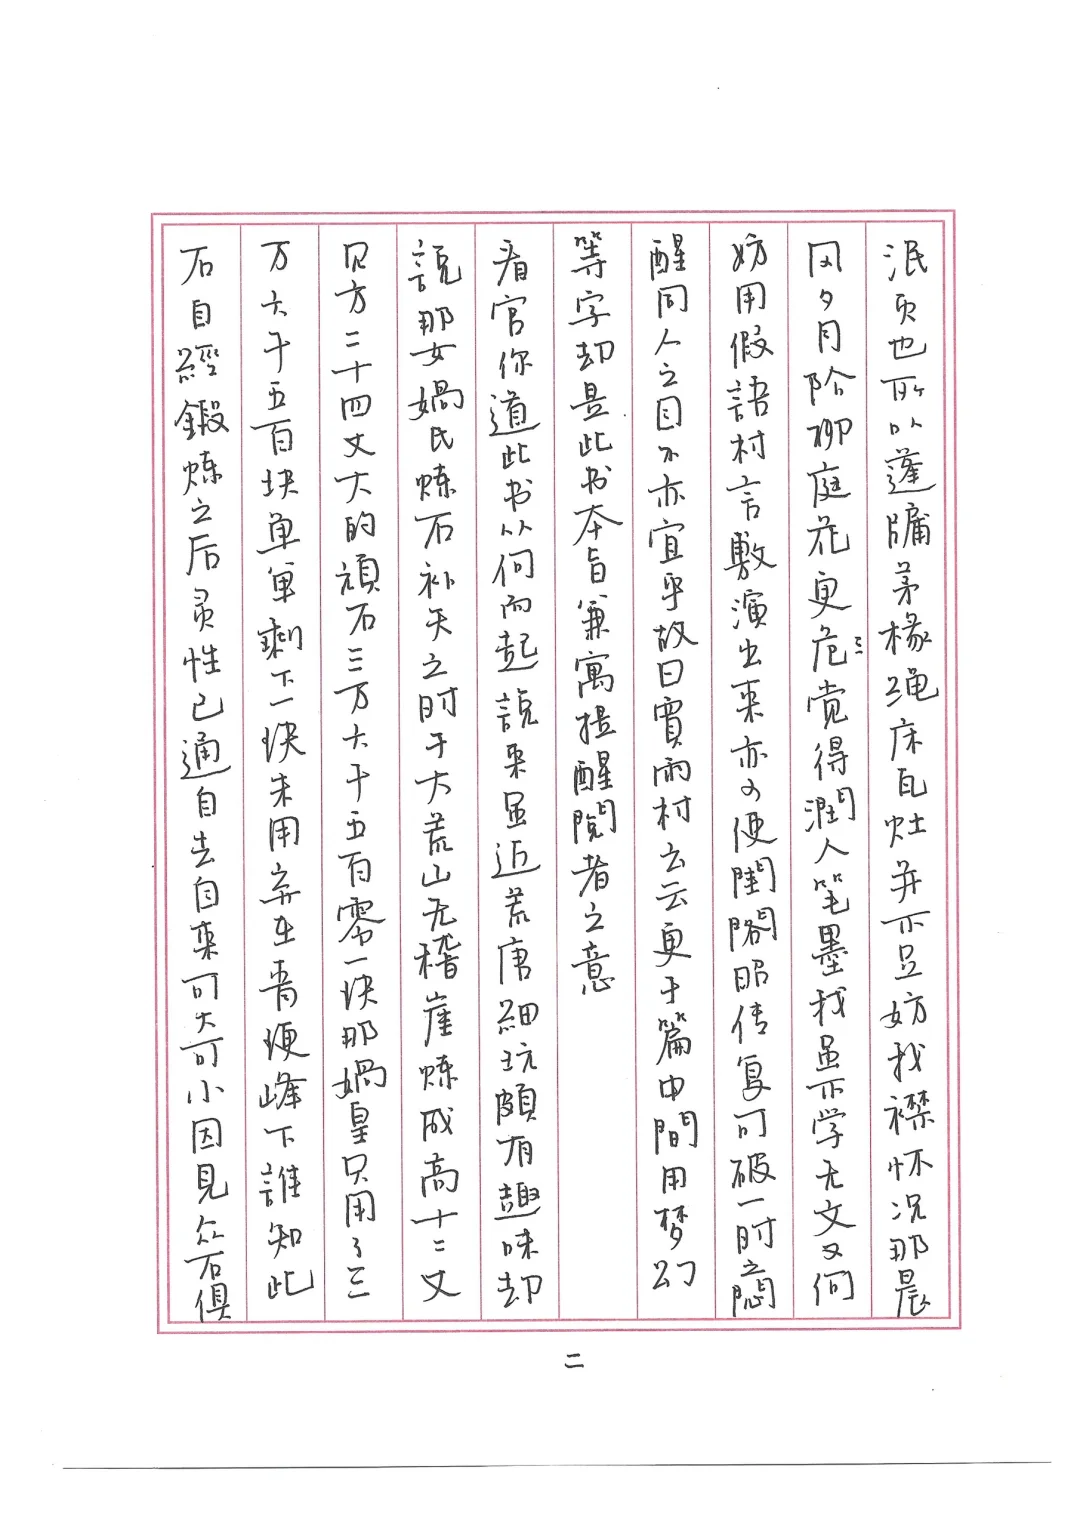 泯灭也所以蓬牖茅椽绳床瓦灶并不足妨我襟怀况那晨
风夕月阶柳庭花更觉得潤人笔墨我虽不学无文又何
妨用假語村言敷演出来亦可便閨閣昭传复可破一时之悶
醒同人之目不亦宜乎故曰賈雨村云云更于篇中間用梦幻
等字却是此书本旨兼寓提醒閱者之意
看官你道此书从何而起説来虽近荒唐細玩頗有趣味却
説那女媧氏炼石补天之时于大荒山无稽崖炼成高十二丈
见方二十四丈大的頑石三万六千五百零一块那媧皇只用了三
万六千五百块单单剩下一块未用弃在青埂峰下誰知此
石自經鍛炼之后灵性已通自去自来可大可小因見众石俱
二